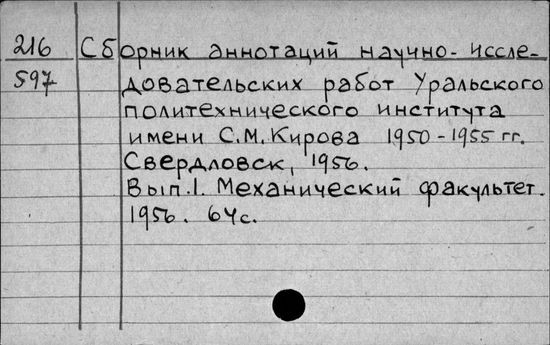 216
597
Сборник аннотаций научно-иссле-
довательских работ Уральского
политехнического института
имени С.М.Кирова 1950-1955 гг.
Свердловск, 1956.
Вып.1. Механический факультет.
1956. 64с.